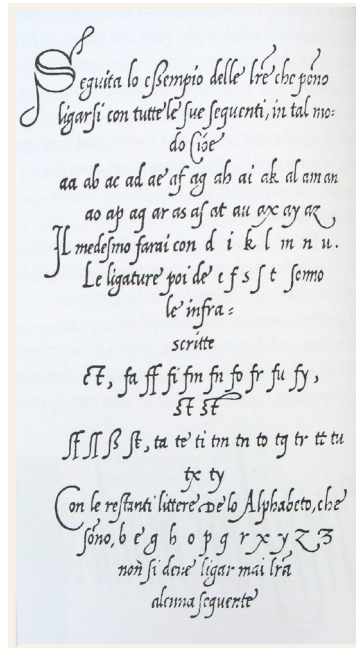 Seguita lo eßempio delle lr̃e che põno
ligarsi con tutte le sue sequenti, in tal mo=
do Cioe
aa ab ac ad ae af ag ah ai ak al am an
ao ap aq ar as aſ at au ax ay az
Il medesmo farai con d i k l m n u.
Le ligature poi de c f s ſ t sonno
le infra=
scritte
ct, fa ff fi fm fn fo fr fu fy,
st ſt
ſf ſſ ß ſt, ta te ti tm tn to tq tr tt tu
tx ty
Con le restanti littere de lo Alphabeto, che
sõno, b e g h o p q r x y z ʒ
non̄ si deve ligar mai lr̃a
alcuna sequente